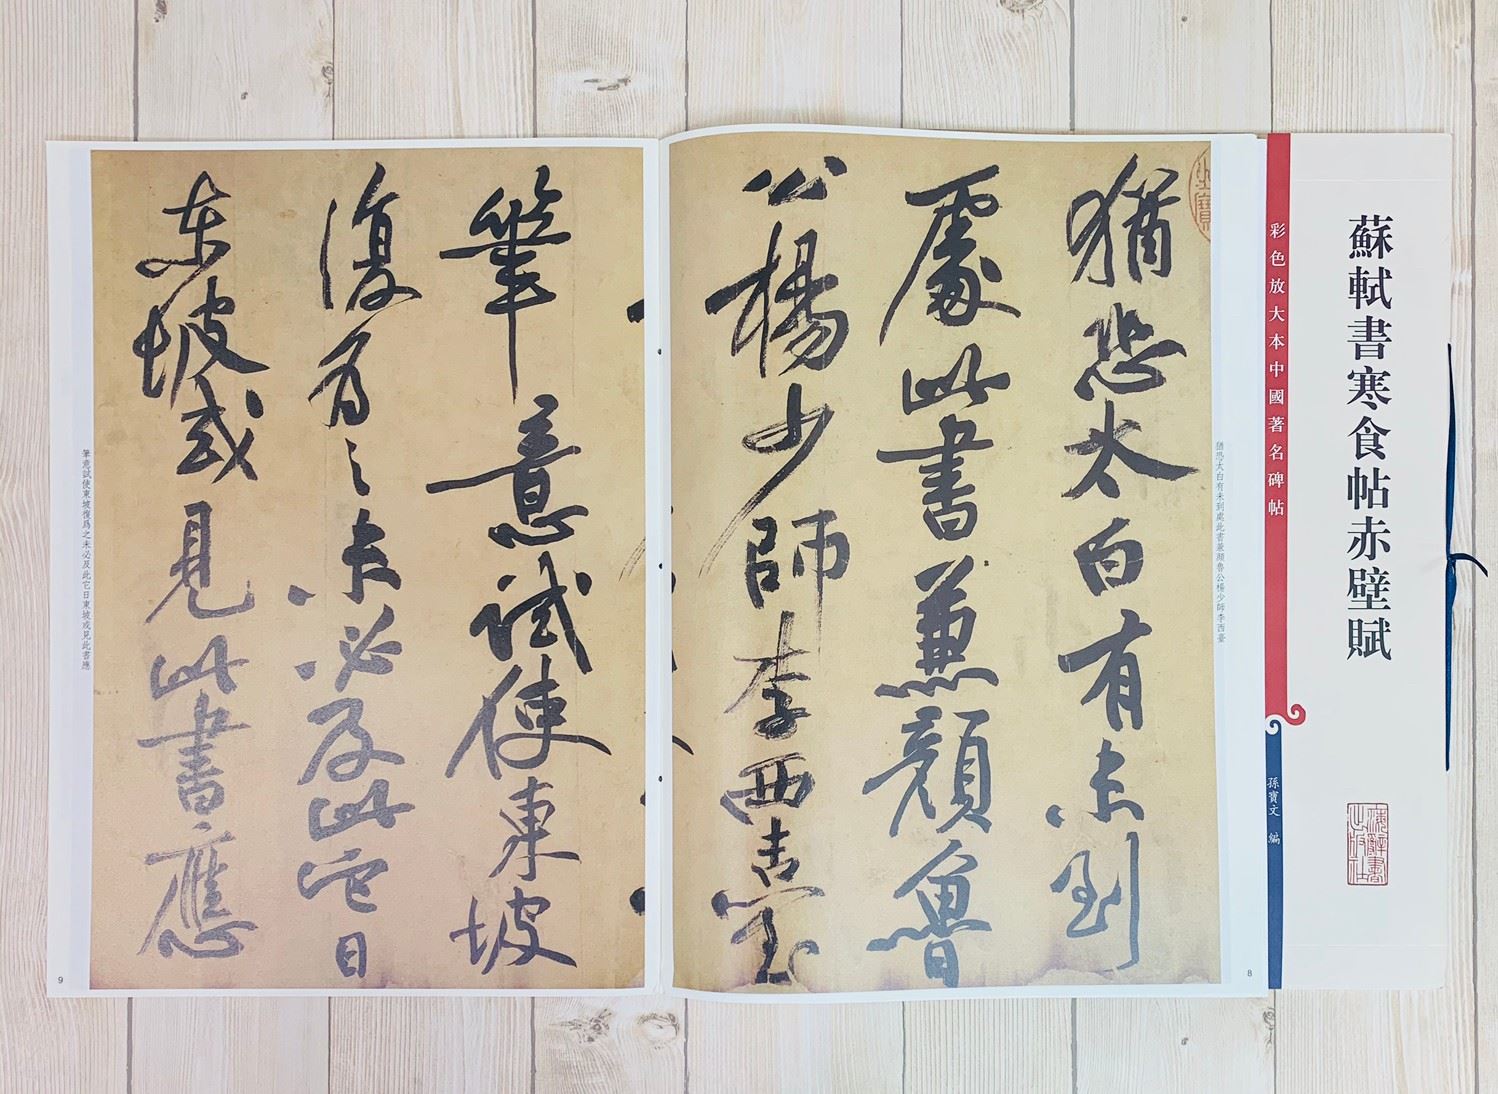 蘇軾書寒食帖赤壁賦
彩色放大本中國著名碑帖
孫寶文 編
猶恐太白有未到
處此書兼顏魯
公楊少師李西臺
猶恐太白有未到處此書兼顏魯公楊少師李西臺
8
筆意試使東坡
復為之未必及此它日
東坡或見此書應
筆意試使東坡復爲之未必及此它日東坡或見此書應
9